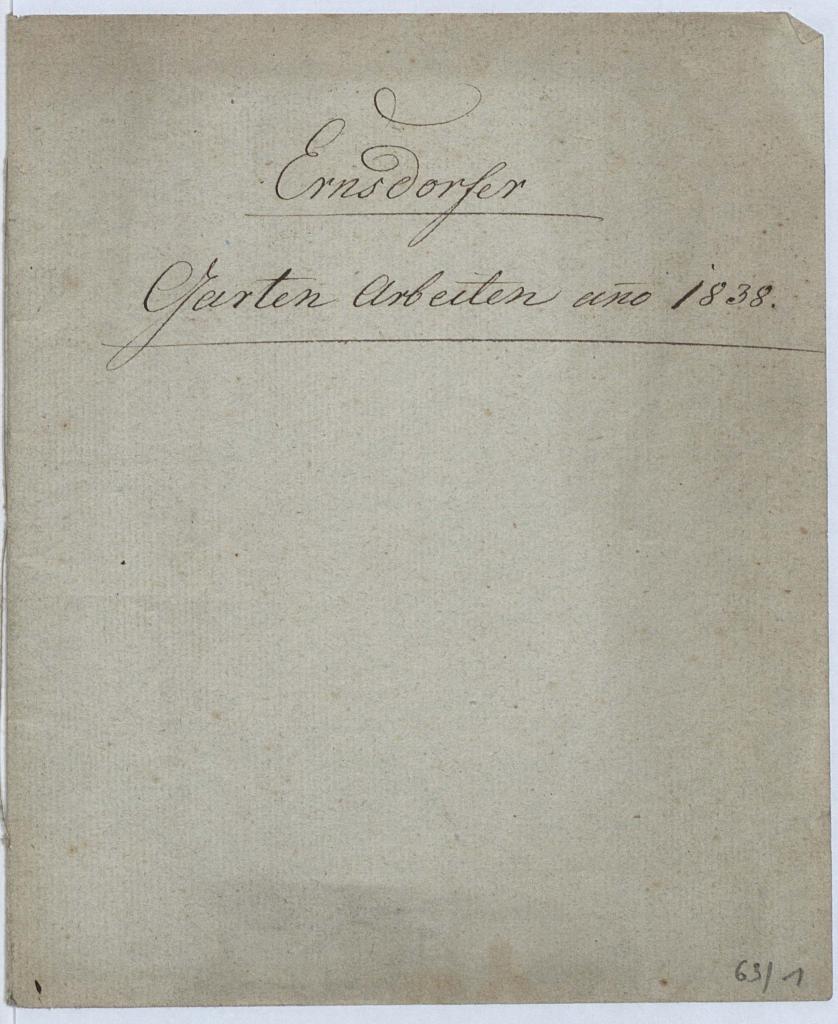 Ernsdorfer
Garten Arbeiten an̄o 1838.
69/1